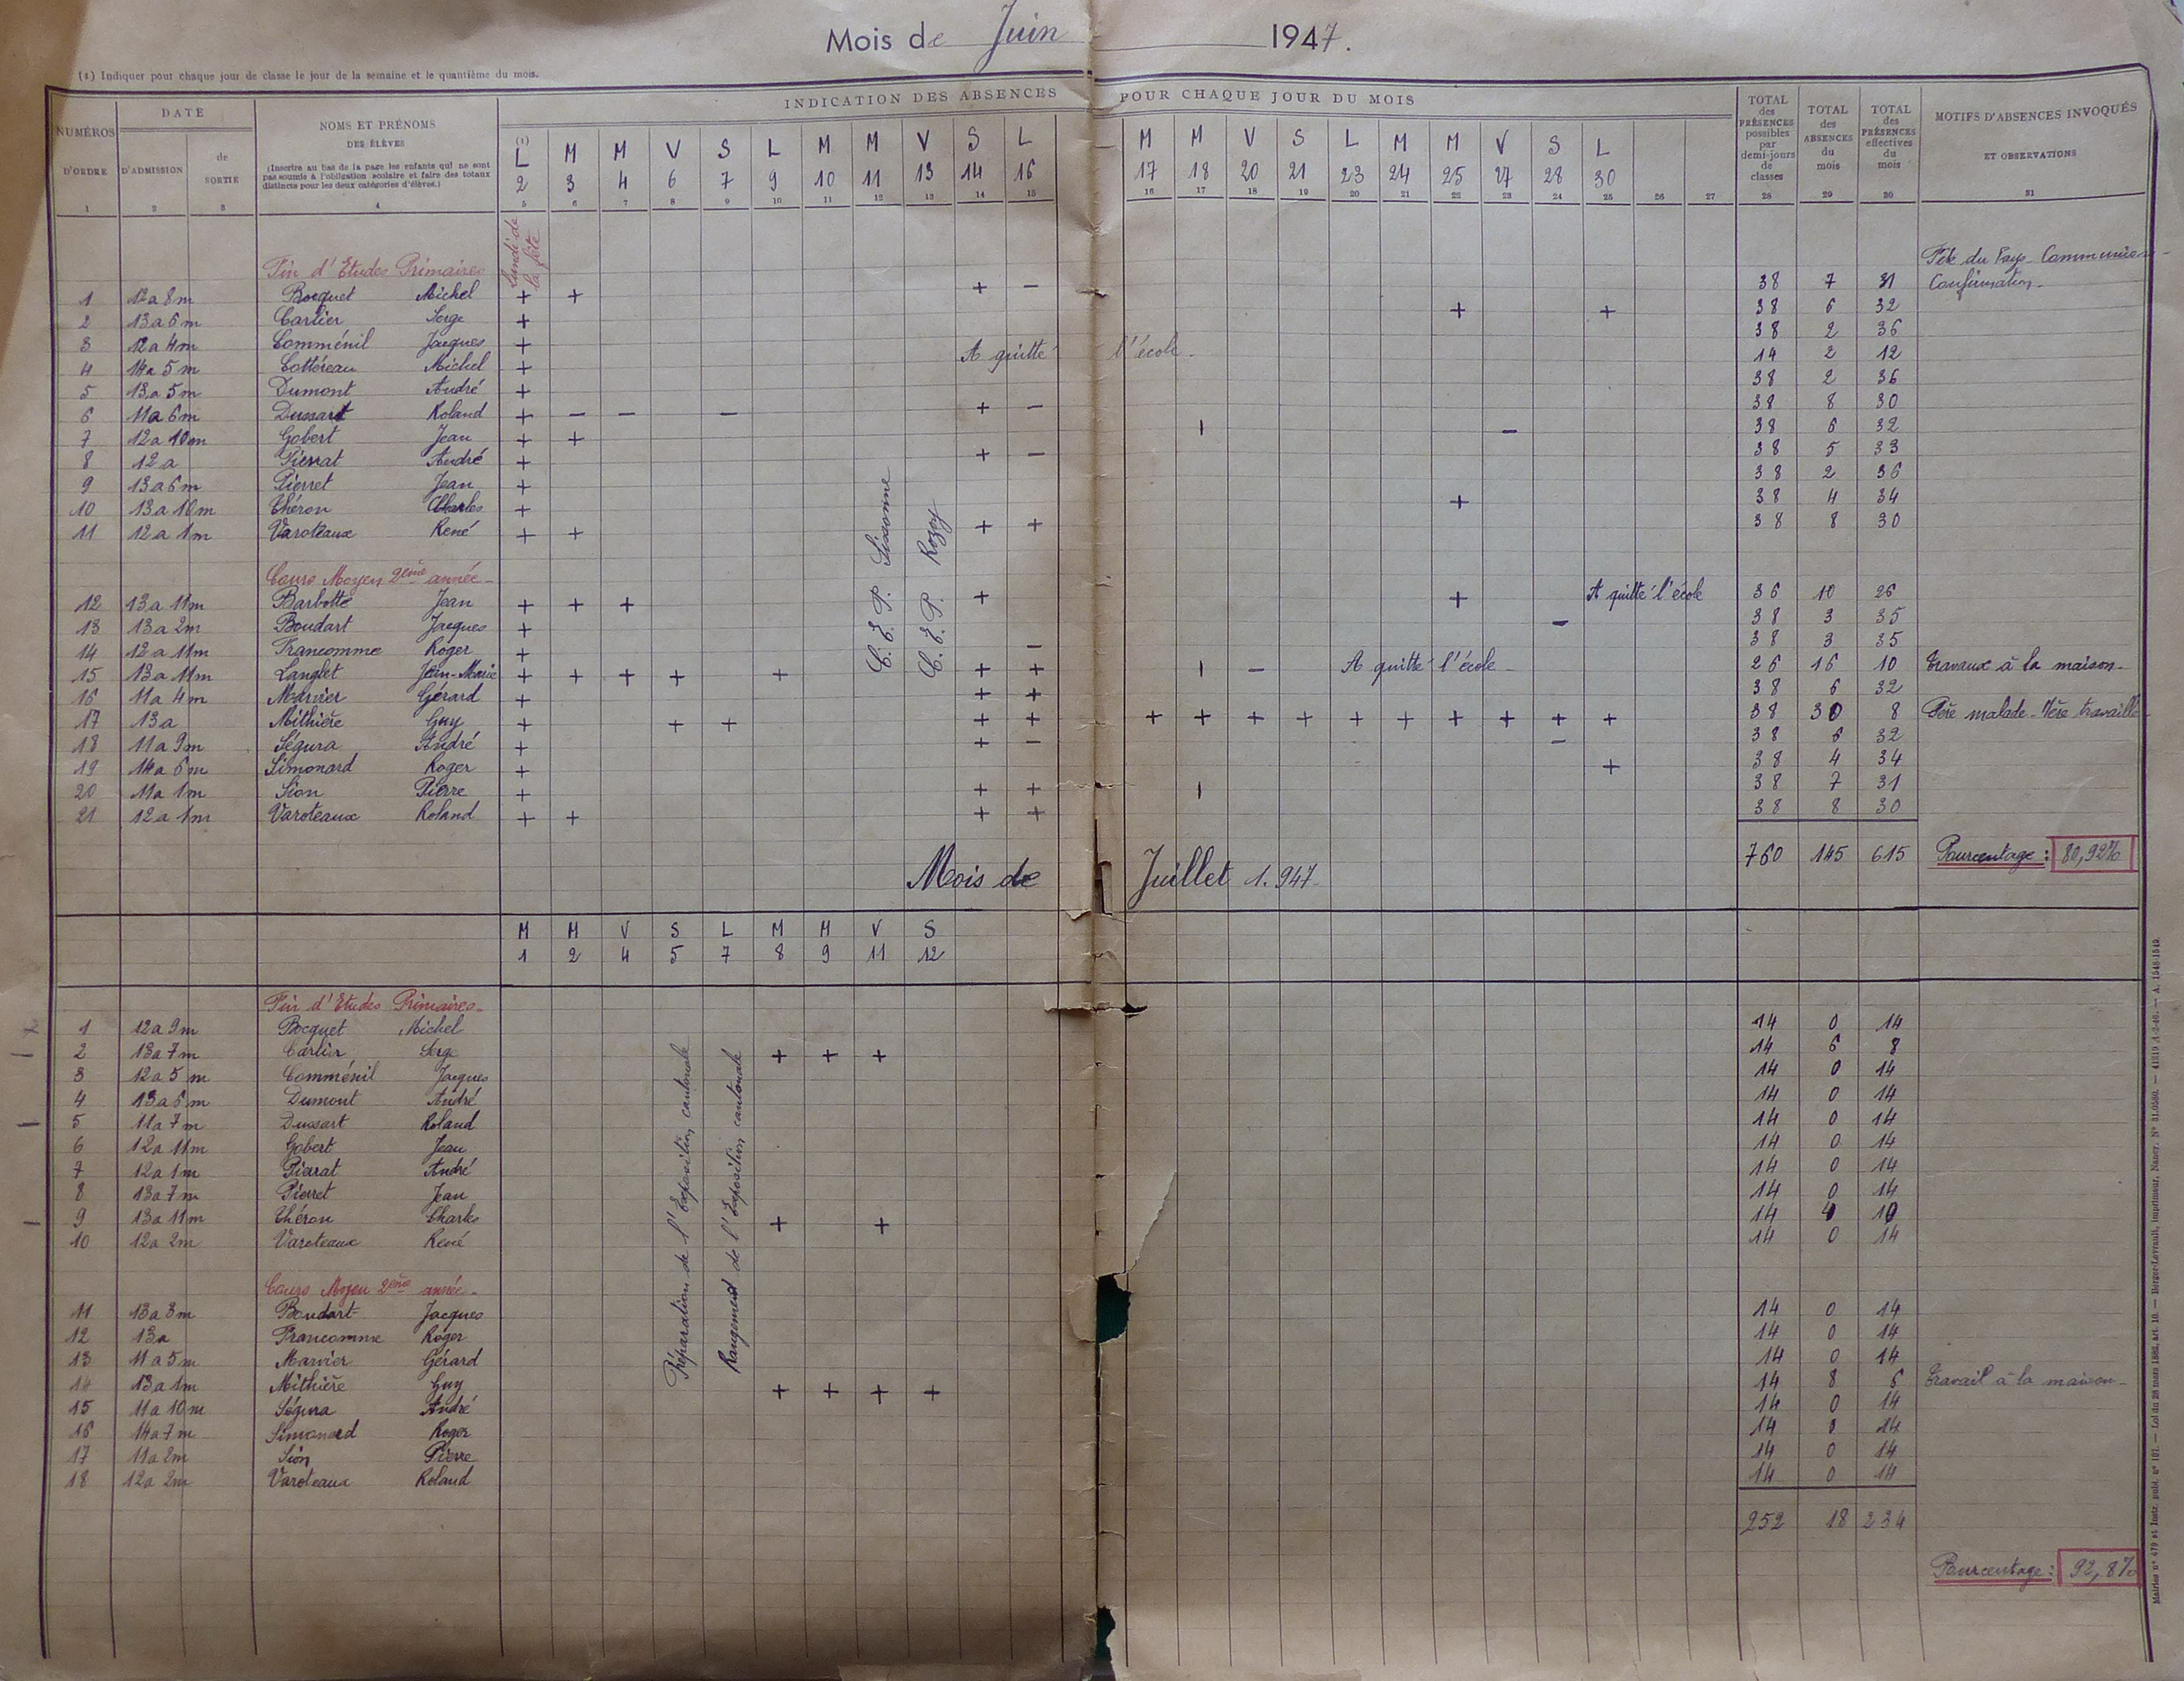 Mois de Juin 1947.
(1) Indiquer pour chaque jour de classe le jour de la semaine et le quantième du mois.
NUMÉROS D'ORDRE
DATE
D'ADMISSION
de SORTIE
NOMS ET PRÉNOMS
DES ÉLÈVES
(Inscrire au bas de la page les enfants qui ne sont
pas soumis à l'obligation scolaire et faire des totaux
distincts pour les deux catégories d'élèves.)
INDICATION DES ABSENCES POUR CHAQUE JOUR DU MOIS
TOTAL des PRÉSENCES possibles par demi-jours de classes
TOTAL des ABSENCES du mois
TOTAL des PRÉSENCES effectives du mois
MOTIFS D'ABSENCES INVOQUÉS
ET OBSERVATIONS
(1)
L M M V S L M M V S L M M V S L M M V S L
2 3 4 6 7 9 10 11 13 14 16 17 18 20 21 23 24 25 27 28 30
1 2 3 4 5 6 7 8 9 10 11 12 13 14 15 16 17 18 19 20 21 22 23 24 25 26 27 28 29 30 31
Lundi de
la fête
C. E. P. Sissonne
C. E. P. Rozoy
Fin d'Etudes Primaires
Fête du Pays - Communion -
Confirmation -
1 12 a 8 m Bocquet Michel + + + - 38 7 31
2 13 a 6 m Carlier Serge + + + 38 6 32
3 12 a 4 m Comménil Jacques + 38 2 36
4 14 a 5 m Cottéreau Michel + A quitté l'école - 14 2 12
5 13 a 5 m Dumont André + 38 2 36
6 11 a 6 m Dussart Roland + - - - + - 38 8 30
7 12 a 10 m Gobert Jean + + | - 38 6 32
8 12 a Pierrat André + + - 38 5 33
9 13 a 6 m Pierret Jean + 38 2 36
10 13 a 10 m Théron Charles + + 38 4 34
11 12 a 1 m Varoteaux René + + + + 38 8 30
Cours Moyen 2ème année -
12 13 a 11 m Barbotte Jean + + + + + A quitté l'école 36 10 26
13 13 a 2 m Boudart Jacques + - 38 3 35
14 12 a 11 m Francomme Roger + - 38 3 35
15 13 a 11 m Langlet Jean-Marie + + + + + + + | - A quitté l'école - 26 16 10 Travaux à la maison -
16 11 a 4 m Marvier Gérard + + + 38 6 32
17 13 a Mithière Guy + + + + + + + + + + + + + + + 38 30 8 Père malade - Mère travaille
18 11 a 9 m Ségura André + + - - 38 6 32
19 14 a 6 m Simonard Roger + + 38 4 34
20 11 a 1 m Sion Pierre + + + | 38 7 31
21 12 a 1 m Varoteaux Roland + + + + 38 8 30
760 145 615 Pourcentage : 80,92%
Mois de Juillet 1.947
M M V S L M M V S
1 2 4 5 7 8 9 11 12
Préparation de l'Exposition cantonale
Rangement de l'Exposition cantonale
Fin d'Etudes Primaires -
1 12 a 9 m Bocquet Michel 14 0 14
2 13 a 7 m Carlier Serge + + + 14 6 8
3 12 a 5 m Comménil Jacques 14 0 14
4 13 a 6 m Dumont André 14 0 14
5 11 a 7 m Dussart Roland 14 0 14
6 12 a 11 m Gobert Jean 14 0 14
7 12 a 1 m Pierrat André 14 0 14
8 13 a 7 m Pierret Jean 14 0 14
9 13 a 11 m Théron Charles + + 14 4 10
10 12 a 2 m Varoteaux René 14 0 14
Cours Moyen 2ème année -
11 13 a 3 m Boudart Jacques 14 0 14
12 13 a Francomme Roger 14 0 14
13 11 a 5 m Marvier Gérard 14 0 14
14 13 a 1 m Mithière Guy + + + + 14 8 6 Travail à la maison -
15 11 a 10 m Ségura André 14 0 14
16 14 a 7 m Simonard Roger 14 0 14
17 11 a 2 m Sion Pierre 14 0 14
18 12 a 2 m Varoteaux Roland 14 0 14
252 18 234
Pourcentage : 92,8%